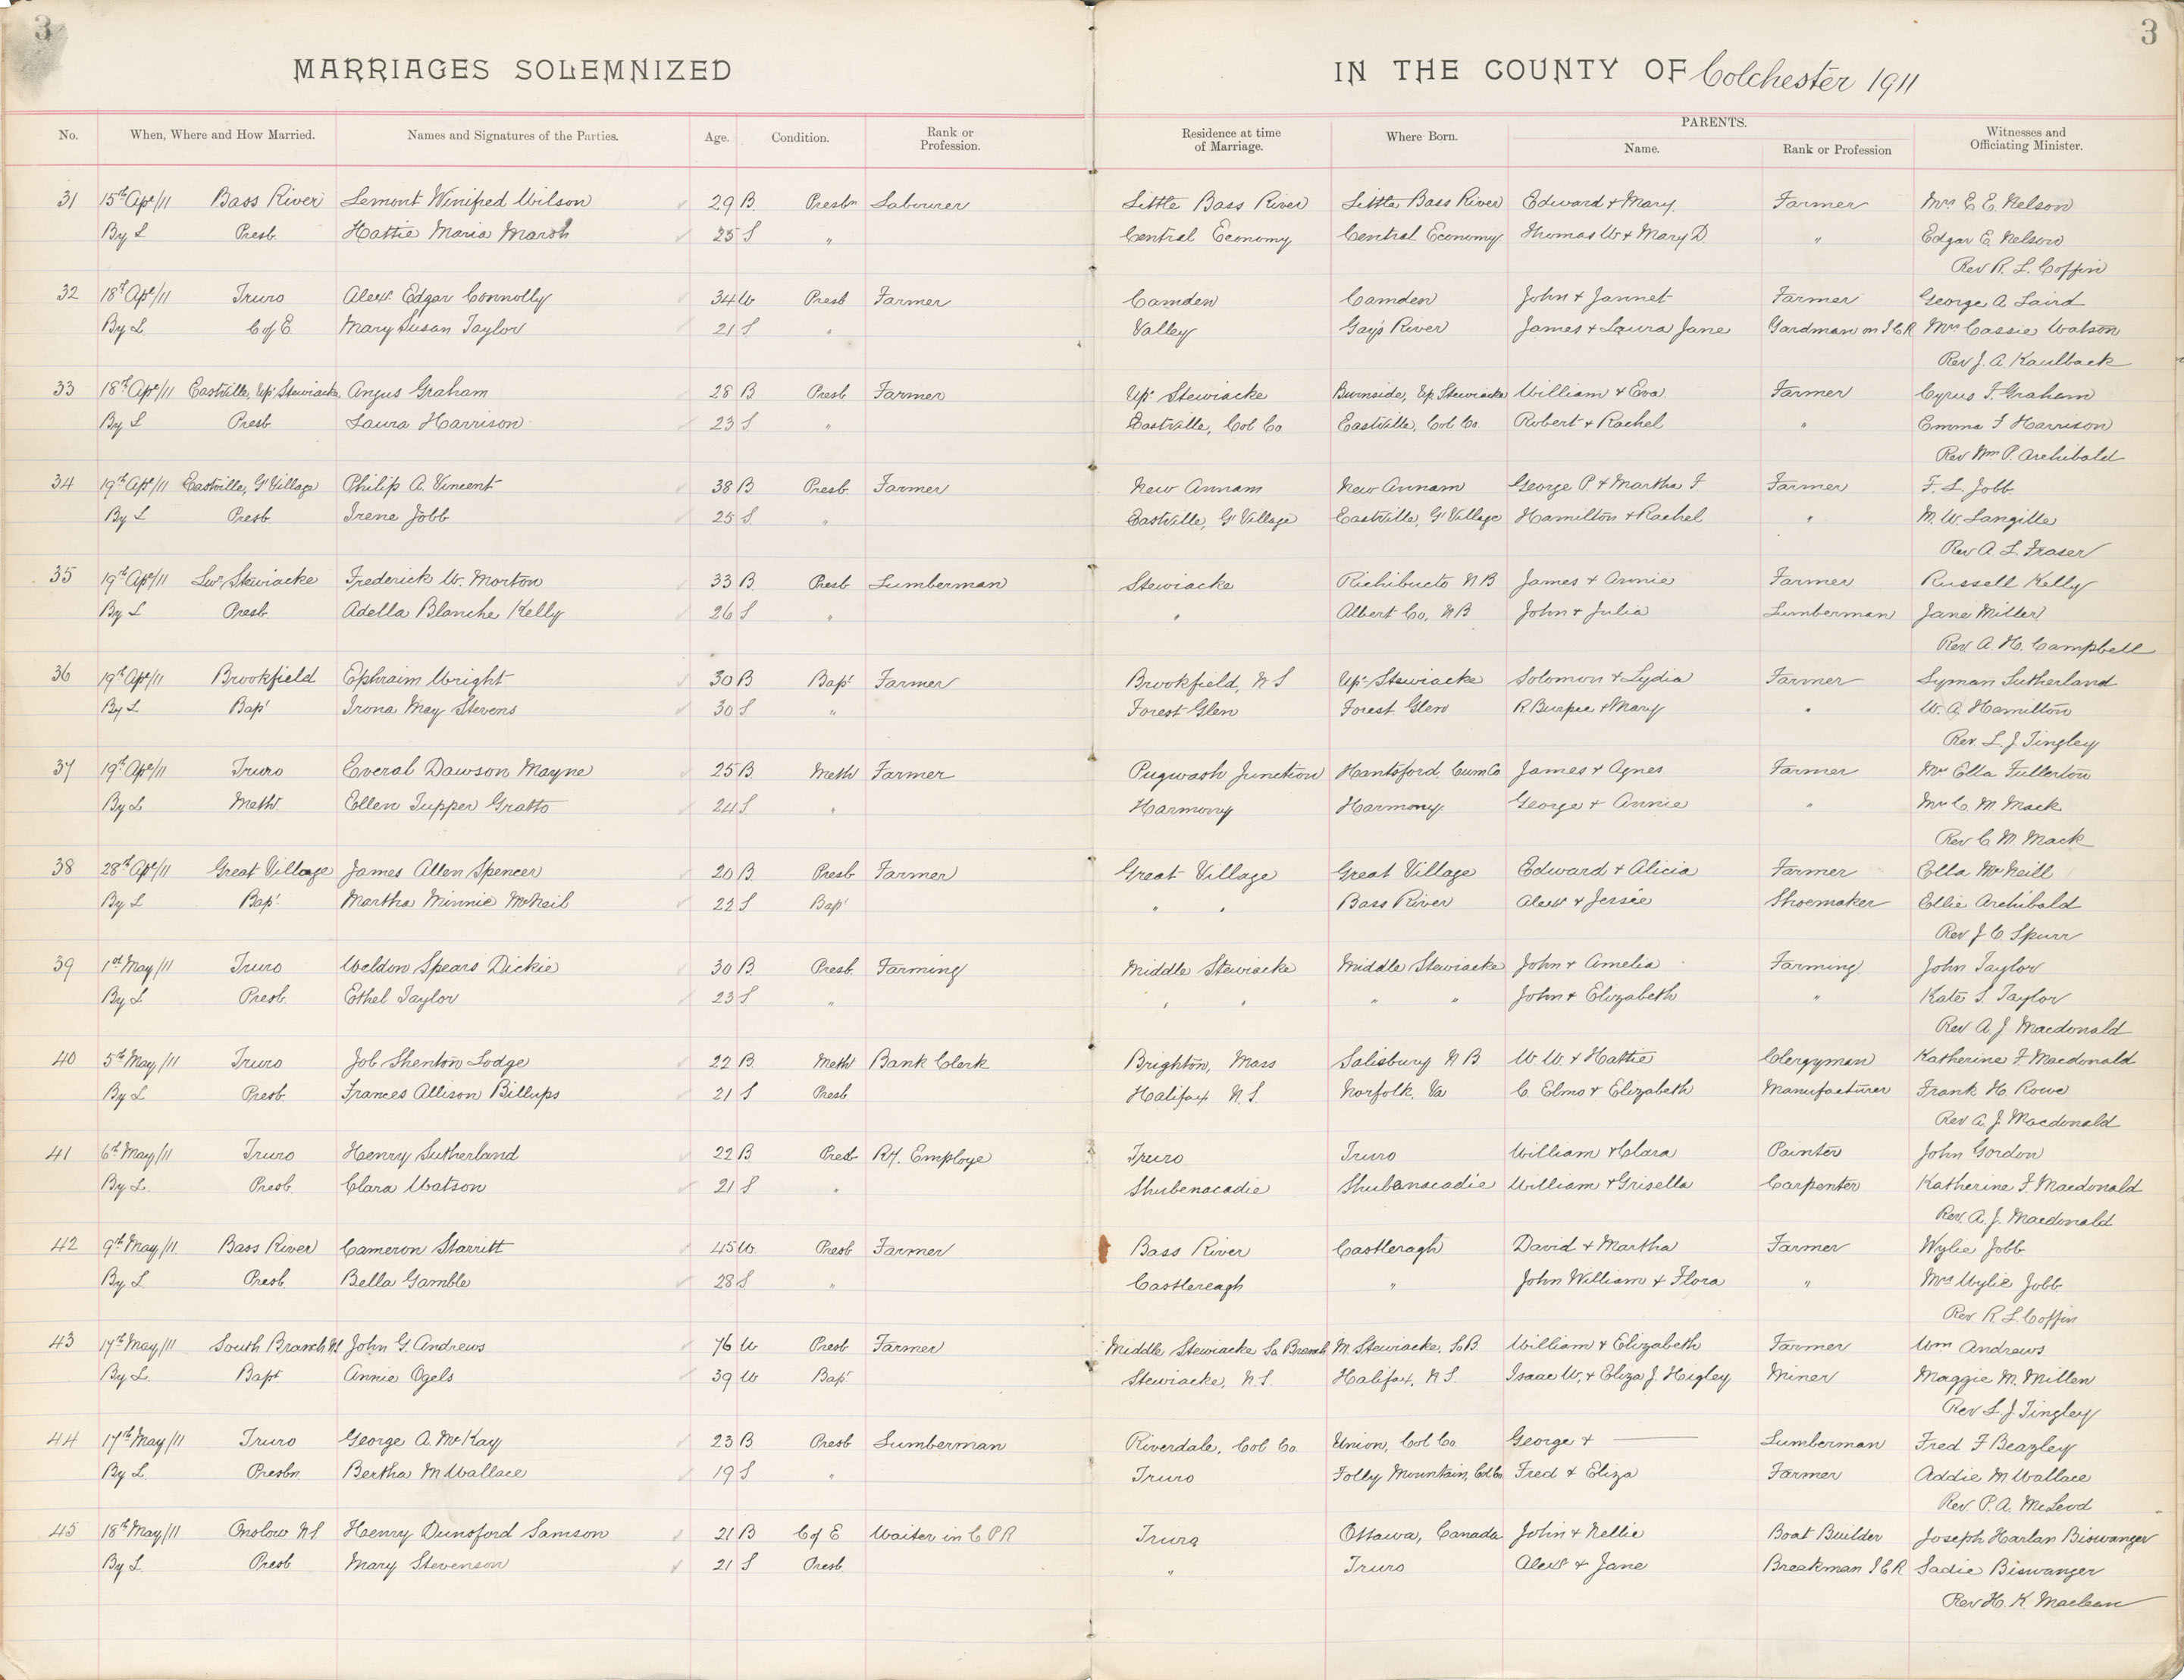 3 3
MARRIAGES SOLEMNIZED IN THE COUNTY OF Colchester 1911
No. When, Where and How Married. Names and Signatures of the Parties. Age. Condition. Rank or Profession. Residence at time of Marriage. Where Born. PARENTS. Name. Rank or Profession Witnesses and Officiating Minister.
31 15th Apl/11 Bass River Lemont Winifred Wilson 29 B. Presbn Labourer Little Bass River Little Bass River Edward & Mary Farmer Mrs E. E. Nelson
By L Presb. Hattie Maria Marsh 25 S " Central Economy Central Economy Thomas W & Mary D. " Edgar E. Nelson
Rev R. L. Coffin
32 18th Apl/11 Truro Alexr Edgar Connolly 34 W Presb Farmer Camden Camden John & Jannet Farmer George A Laird
By L. C of E. Mary Susan Taylor 21 S " Valley Gay's River James & Laura Jane Gardman on I C R Mrs Cassie Watson
Rev J. A. Kaulback
33 18th Apl/11 Eastville, Upr Stewiacke Angus Graham 28 B Presb Farmer Upr Stewiacke Burnside, Up. Stewiacke William & Eva Farmer Cyrus F. Graham
By L Presb Laura Harrison 23 S " Eastville, Col Co Eastville, Col Co Robert & Rachel " Emma F Harrison
Rev Wm P. Archibald
34 19th Apl/11 Eastville, Gt Village Philip A. Vincent 38 B. Presb. Farmer New Annam New Annam George P. & Martha F. Farmer F. L. Jobb
By L Presb. Irene Jobb 25 S " Eastville, Gt Village Eastville, Gt Village Hamilton & Rachel " M. W. Langille
Rev A. L. Fraser
35 19th Apl/11 Lwr Stewiacke Frederick W. Morton 33 B. Presb Lumberman Stewiacke Richibucto N B James & Annie Farmer Russell Kelly
By L Presb. Adella Blanche Kelly 26 S " " Albert Co, N B John & Julia Lumberman Jane Miller
Rev A. H. Campbell
36 19th Apl/11 Brookfield Ephraim Wright 30 B Bapt Farmer Brookfield, N S Upr Stewiacke Solomon & Lydia Farmer Lyman Sutherland
By L Bapt Irona May Stevens 30 S " Forest Glen Forest Glen R Burpee & Mary " W. A Hamilton
Rev. L. J. Tingley
37 19th Apl/11 Truro Everal Dawson Mayne 25 B. Meth Farmer Pugwash Junction Hantsford, Cum Co James & Agnes Farmer Mrs Ella Fullerton
By L Meth. Ellen Tupper Gratto 24 S. " Harmony Harmony. George & Annie " Mrs C. M. Mack
Rev C M Mack
38 28th Apl/11 Great Village James Allen Spencer 20 B Presb Farmer Great Village Great Village Edward & Alicia Farmer Ella McNeill
By L Bapt Martha Minnie McNeil 22 S Bapt " " Bass River Alexr & Jessie Shoemaker Ellie Archibald
Rev J. C. Spurr
39 1st May/11 Truro Weldon Spears Dickie 30 B. Presb. Farming Middle Stewiacke Middle Stewiacke John & Amelia Farming John Taylor
By L Presb. Ethel Taylor 23 S " " " " " John & Elizabeth " Kate S. Taylor
Rev A. J. Macdonald
40 5th May/11 Truro Job Shenton Lodge 22 B. Meth Bank Clerk Brighton, Mass Salisbury N. B. W. W. & Hattie Clergyman Katherine F. Macdonald
By L Presb. Frances Allison Billups 21 S Presb Halifax N. S. Norfolk, Va C. Elmo & Elizabeth Manufacturer Frank H. Rowe
Rev A. J. Macdonald
41 6th May/11 Truro Henry Sutherland 22 B Presb Ry. Employe Truro Truro William & Clara Painter John Gordon
By L. Presb. Clara Watson 21 S " Shubenacadie Shubenacadie William & Grisella Carpenter Katherine F. Macdonald
Rev. A. J. Macdonald
42 9th May/11 Bass River Cameron Starritt 45 W. Presb Farmer Bass River Castleragh David & Martha Farmer Wylie Jobb
By L. Presb. Bella Gamble 28 S " Castlereagh " John William & Flora " Mrs Wylie Jobb
Rev R. L. Coffin
43 17th May/11 South Branch John G. Andrews 76 W Presb Farmer Middle Stewiacke So Branch M. Stewiacke, So B. William & Elizabeth Farmer Wm Andrews
By L. Bapt Annie Ogels 39 W Bapt Stewiacke, N. S. Halifax, N S. Isaac W. & Eliza J. Higley Miner Maggie M. Millen
Rev L. J Tingley
44 17th May/11 Truro George A. McKay 23 B Presb Lumberman Riverdale, Col Co. Union, Col Co George & — Lumberman Fred F Beazley
By L. Presbn. Bertha M Wallace 19 S " Truro Folly Mountain, Col Co Fred & Eliza Farmer Addie M Wallace
Rev P. A. McLeod
45 18th May/11 Onslow N S Henry Dunsford Samson 21 B C of E Waiter in C P R Truro Ottawa, Canada John & Nellie Boat Builder Joseph Harlan Biswanger
By L. Presb Mary Stevenson 21 S Presb. " Truro Alexr & Jane Breakman I C R Sadie Biswanger
Rev H. K. Maclean